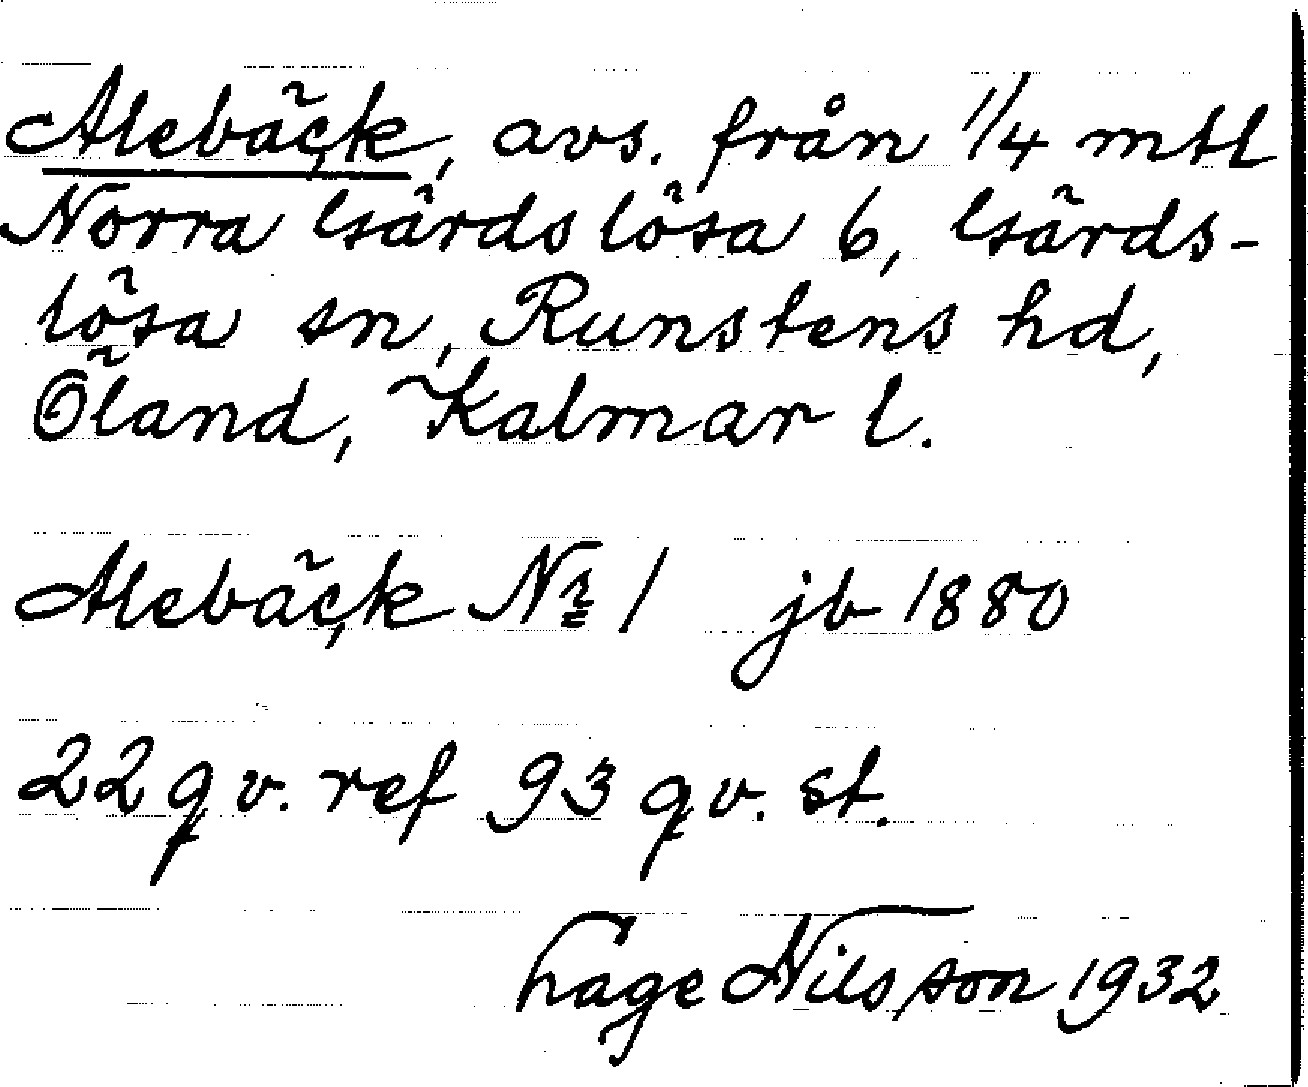 Alebäck, avs. från 1/4 mtl
Norra Gärdslösa 6, Gärds-
lösa sn, Runstens hd,
Öland, Kalmar l.
Alebäck No 1 jb 1880
22 qv. ref 93 qv. st.
Hage Nilsson 1932